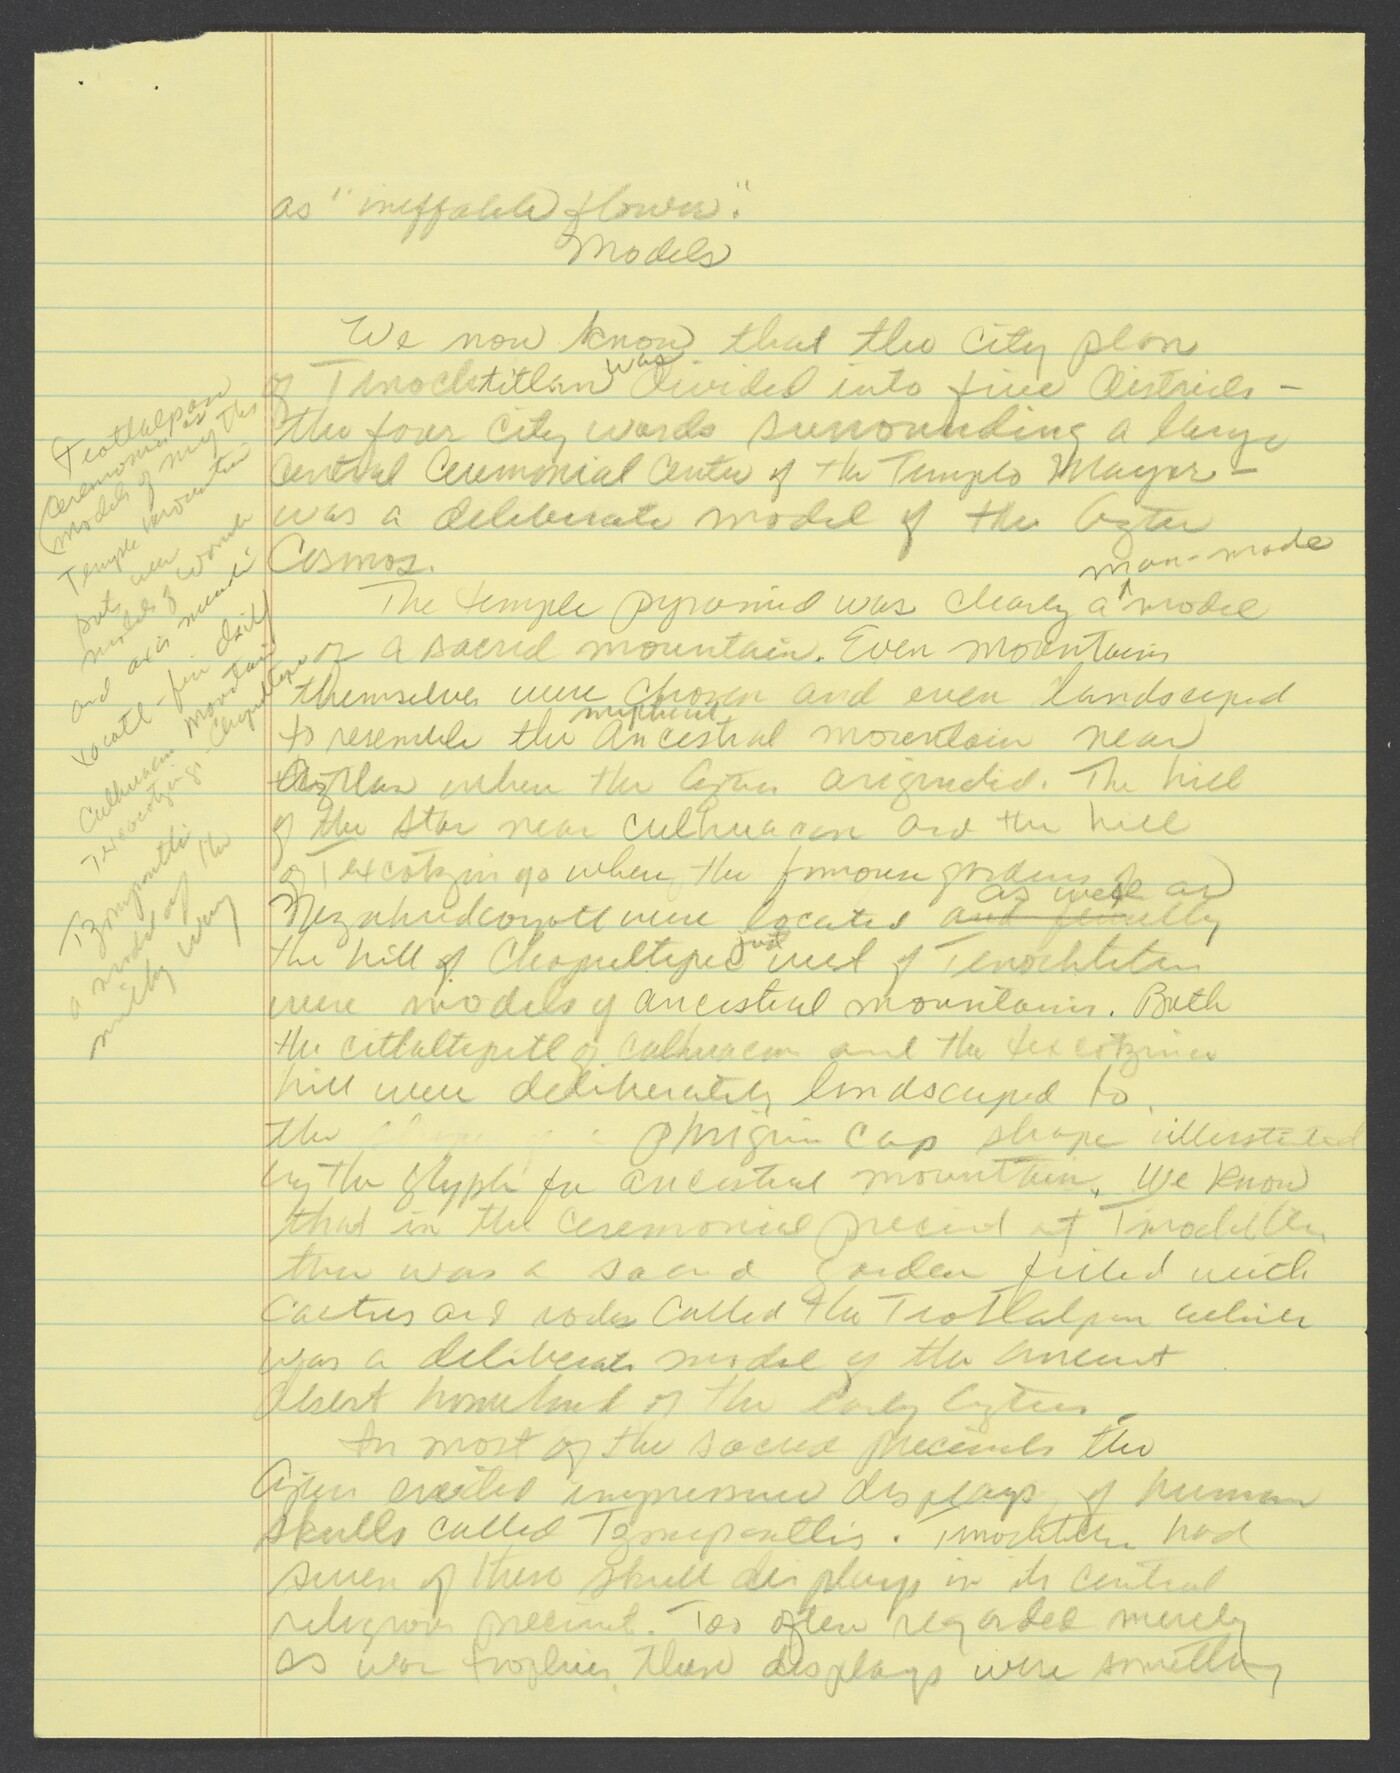 as "ineffable flowers."
Models
We now know that the city plan
of Tenochtitlan was divided into five districts -
the four city wards surrounding a large
central ceremonial center of the Templo Mayor -
was a deliberate model of the Aztec
Cosmos.
man-made
The temple pyramid was clearly a model
of a sacred mountain. Even mountains
themselves were chosen and even landscaped
mythical
to resemble the ancestral mountain near
Aztlan where the Aztecs originated. The hill
of the Star near Culhuacan and the hill
of Texcotzingo where the famous gardens of
as well as
Nezahualcoyotl were located and finally
just
the hill of Chapultepec west of Tenochtitlan
were models of ancestral mountains. Both
the citlaltepetl of Culhuacan and the texcotzinco
hill were deliberately landscaped to
the phrigian cap shape illustrated
by the glyph for ancestral mountain. We know
that in the ceremonial precinct at Tenochtitlan
there was a sacred garden filled with
cactus and rocks called the Teotlalpan which
was a deliberate model of the ancient
desert homeland of the early Aztecs.
In most of the sacred precincts the
Aztecs erected impressive displays of human
skulls called Tzompantlis. Tenochtitlan had
seven of these skull displays in its central
religious precinct. Too often regarded merely
as war trophies, these displays were something
Teotlalpan
ceremonies as
models of myths
Temple mountain
but were
models of womb
and axis mundi
Xocotl - fire drill
Culhuacan mountain
Texcotzingo - Chapultepec
Tzompantli
a model of the
milky way